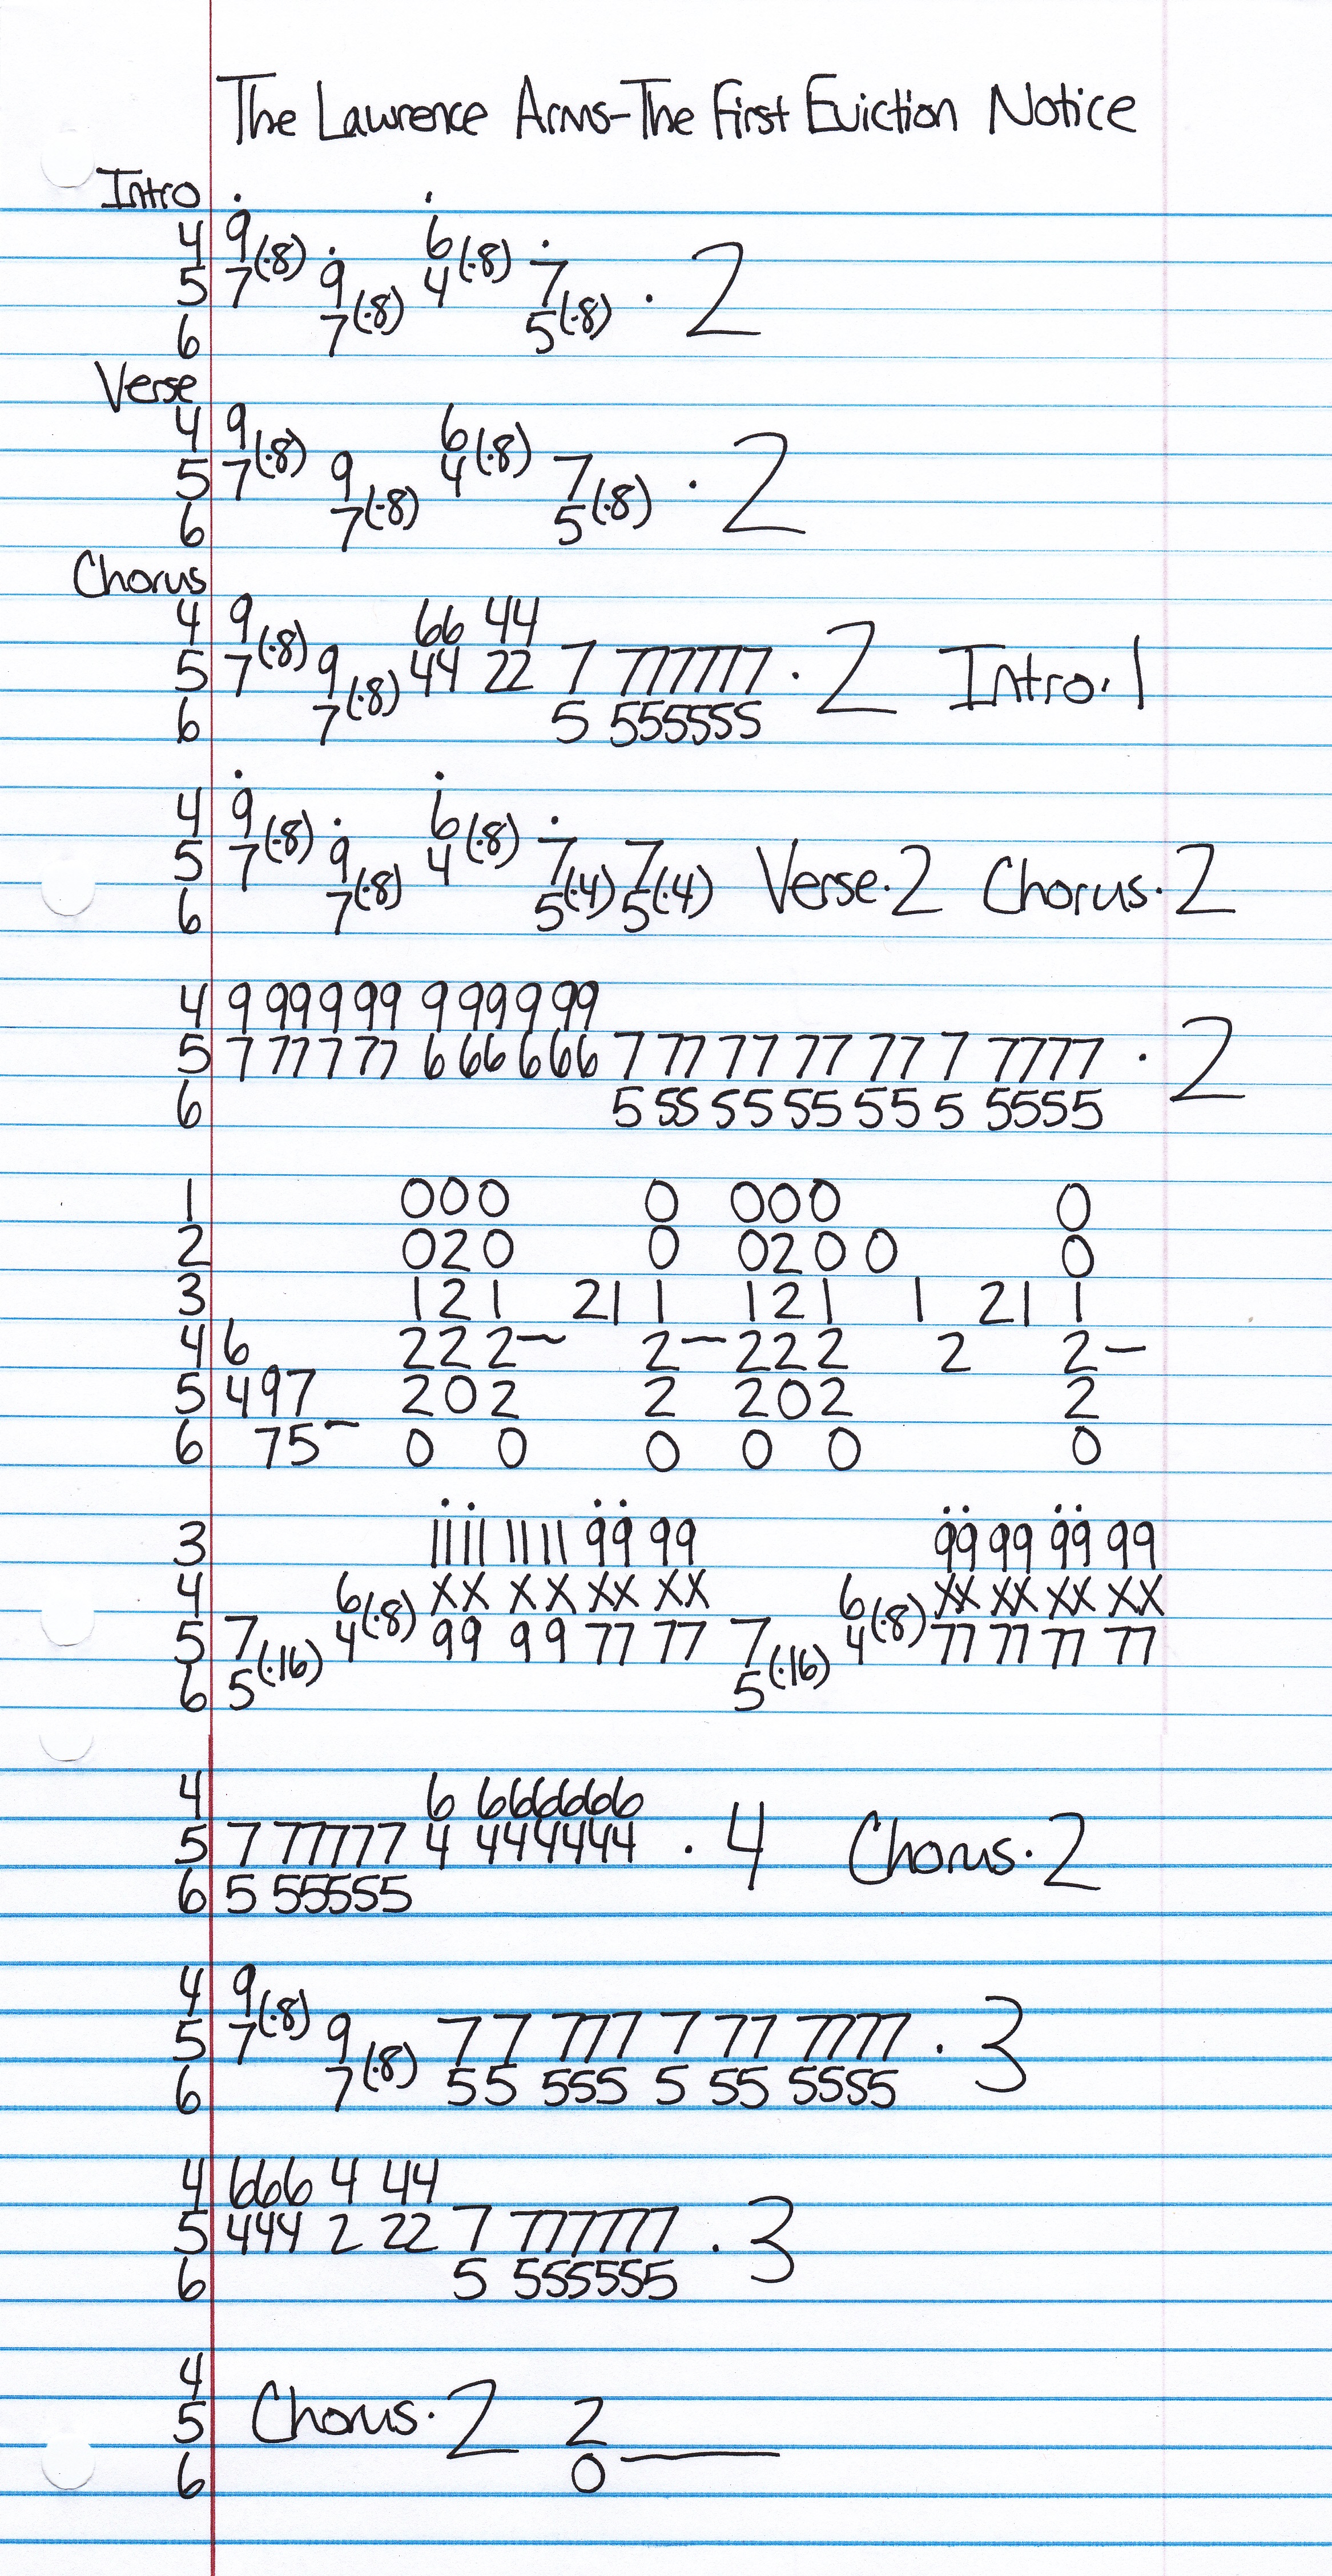 The Lawrence Arms-The First Eviction Notice
Intro
4 9(·8) 6(·8)
5 7 9(·8) 4 7(·8) · 2
6 7 5
Verse
4 9(·8) 6(·8)
5 7 9(·8) 4 7(·8) · 2
6 7 5
Chorus
4 9(·8) 66 44
5 7 9(·8) 44 22 7 777777 · 2 Intro·1
6 7 5 555555
4 9(·8) 6(·8)
5 7 9(·8) 4 7(·4) 7(·4) Verse·2 Chorus·2
6 7 5 5
4 9 99 9 99 9 99 9 99
5 7 77 7 77 6 66 6 66 7 77 77 77 77 7 7777 · 2
6 5 55 55 55 55 5 5555
1 000 0 000 0
2 020 0 020 0 0
3 121 21 1 121 1 21 1
4 6 222— 2—222 2 2—
5 497 202 2 202 2
6 75— 0 0 0 0 0 0
3 1111 1111 99 99 99 99 99 99
4 6(·8) XX XX XX XX 6(·8) XX XX XX XX
5 7(·16) 4 99 99 77 77 7(·16) 4 77 77 77 77
6 5 5
4 6 666666
5 7 77777 4 444444 · 4 Chorus·2
6 5 55555
4 9(·8)
5 7 9(·8) 77 777 7 77 7777 · 3
6 7 55 555 5 55 5555
4 666 4 44
5 444 2 22 7 777777 · 3
6 5 555555
4
5 Chorus·2 2
6 0—